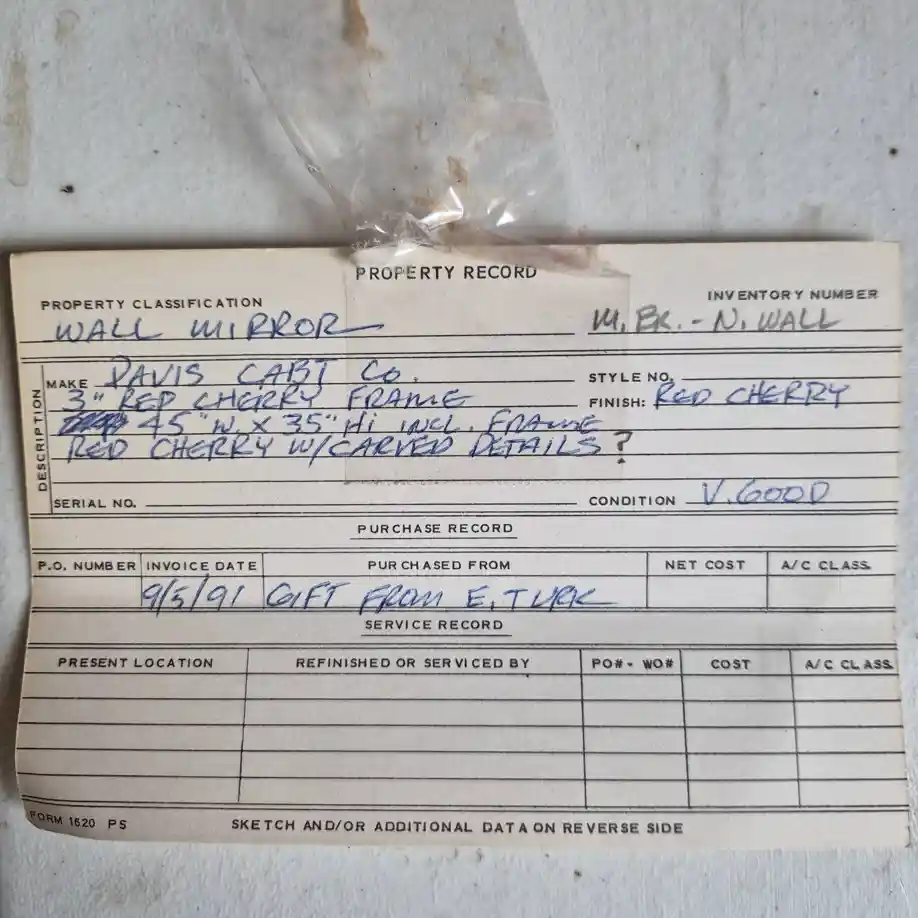 PROPERTY RECORD
PROPERTY CLASSIFICATION INVENTORY NUMBER
WALL MIRROR M. BR. - N. WALL
MAKE DAVIS CABT CO. STYLE NO.
3" RED CHERRY FRAME FINISH: RED CHERRY
45" W. X 35" Hi INCL. FRAME
RED CHERRY W/CARVED DETAILS ?
DESCRIPTION
SERIAL NO. CONDITION V. GOOD
PURCHASE RECORD
P.O. NUMBER INVOICE DATE PURCHASED FROM NET COST A/C CLASS.
9/5/91 GIFT FROM E. TURK
SERVICE RECORD
PRESENT LOCATION REFINISHED OR SERVICED BY PO# - WO# COST A/C CLASS.
FORM 1620 PS SKETCH AND/OR ADDITIONAL DATA ON REVERSE SIDE